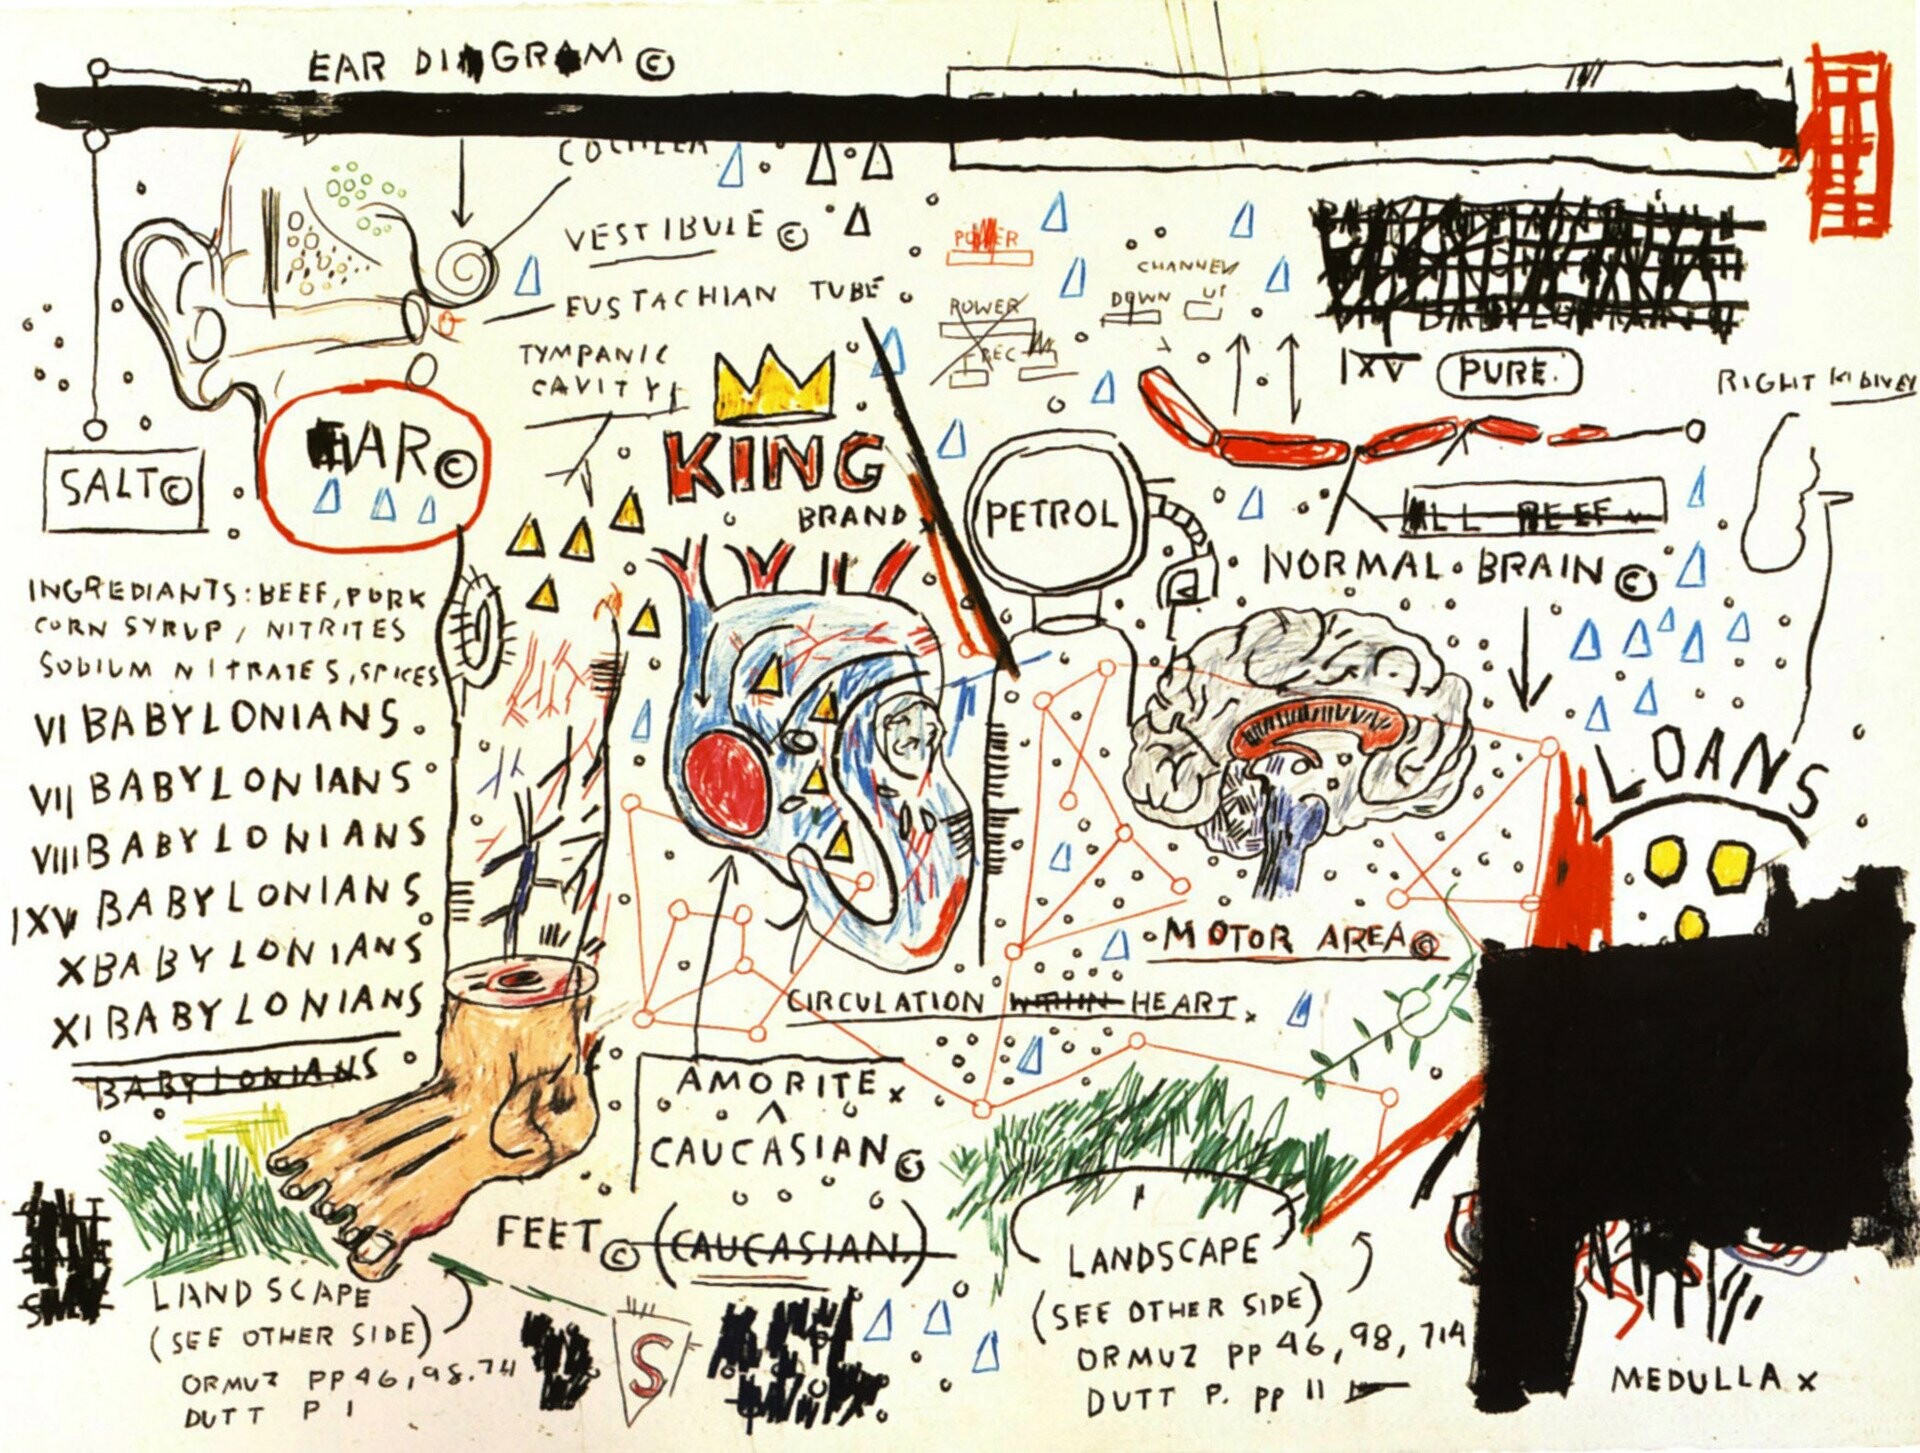 EAR DIAGRAM ©
COCHLEA
VESTIBULE ©
EUSTACHIAN TUBE
TYMPANIC
CAVITY
POWER
CHANNEL
POWER
DOWN UP
REC
IXV PURE.
RIGHT KIDNEY
EAR ©
SALT ©
KING
BRAND
PETROL
ALL BEEF
NORMAL BRAIN ©
INGREDIANTS: BEEF, PORK
CORN SYRUP / NITRITES
SODIUM NITRATES, SPICES
VI BABYLONIANS.
VII BABYLONIANS
VIII BABYLONIANS
IXV BABYLONIANS
X BABYLONIANS
XI BABYLONIANS
BABYLONIANS
LOANS
MOTOR AREA ©
CIRCULATION WITHIN HEART.
AMORITE
CAUCASIAN ©
FEET © (CAUCASIAN.)
LANDSCAPE
(SEE OTHER SIDE)
ORMUZ PP 46, 98, 714
DUTT P 1
S
LANDSCAPE
(SEE OTHER SIDE)
ORMUZ PP 46, 98, 714
DUTT P. PP 11
MEDULLA x